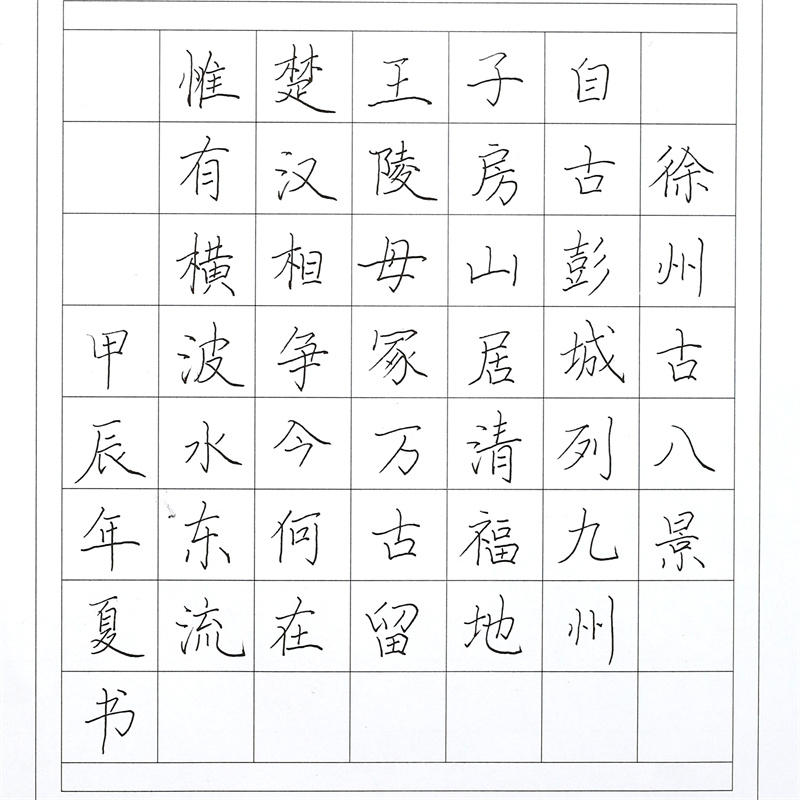 徐州古八景
自古彭城列九州
子房山居清福地
王陵母冢万古留
楚汉相争今何在
惟有横波水东流
甲辰年夏书